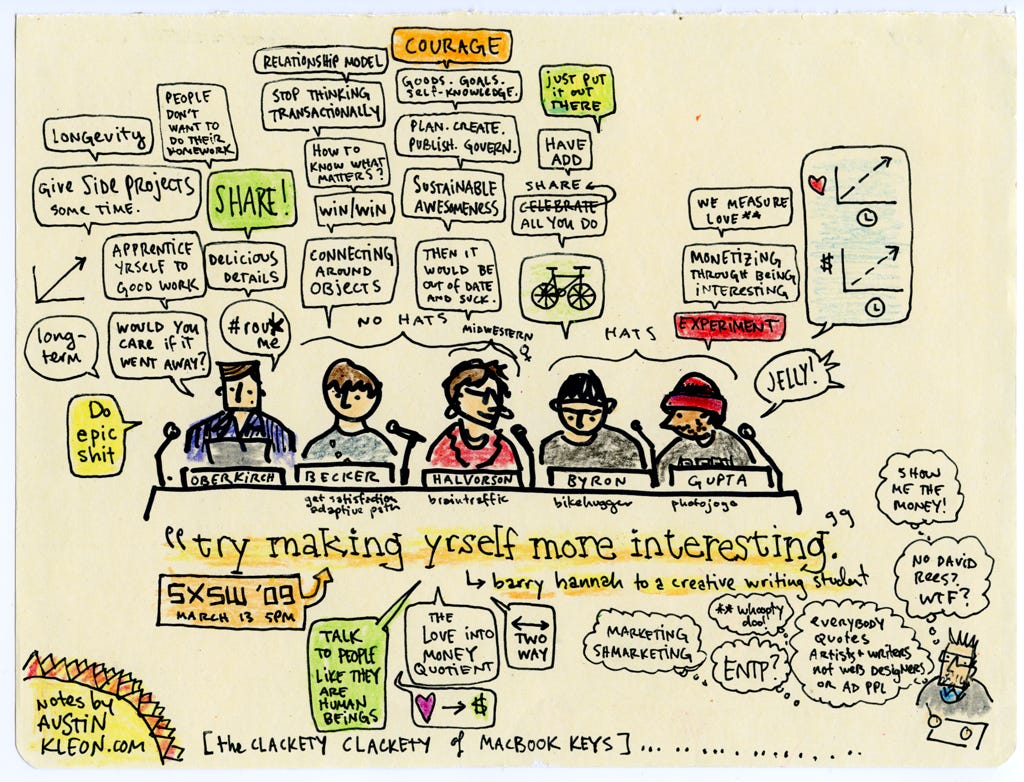 COURAGE
RELATIONSHIP MODEL
GOODS. GOALS.
SELF-KNOWLEDGE.
JUST PUT
IT OUT
THERE
PEOPLE
DON'T
WANT TO
DO THEIR
HOMEWORK
STOP THINKING
TRANSACTIONALLY
LONGEVITY
PLAN. CREATE.
PUBLISH. GOVERN.
HAVE
ADD
HOW TO
KNOW WHAT
MATTERS?
GIVE SIDE PROJECTS
SOME TIME.
SHARE!
SUSTAINABLE
AWESOMENESS
SHARE
CELEBRATE
ALL YOU DO
WIN/WIN
WE MEASURE
LOVE**
APPRENTICE
YRSELF TO
GOOD WORK
DELICIOUS
DETAILS
CONNECTING
AROUND
OBJECTS
THEN IT
WOULD BE
OUT OF DATE
AND SUCK.
MONETIZING
THROUGH BEING
INTERESTING
$
long-
term
WOULD YOU
CARE IF IT
WENT AWAY?
NO HATS
MIDWESTERN
HATS
EXPERIMENT
JELLY!
Do
epic
shit
OBERKIRCH
BECKER
HALVORSON
BYRON
GUPTA
get satisfaction
adaptive path
braintraffic
bikehugger
photojojo
"try making yrself more interesting."
barry hannah to a creative writing student
SXSW '09
MARCH 13 5PM
TALK
TO PEOPLE
LIKE THEY
ARE
HUMAN
BEINGS
THE
LOVE INTO
MONEY
QUOTIENT
TWO
WAY
$
MARKETING
SHMARKETING
** whoopty
doo!
ENTP?
everybody
quotes
Artists + writers
not web designers
or AD PPL
SHOW
ME THE
MONEY!
NO DAVID
REES?
WTF?
notes by
AUSTIN
KLEON.COM
[the CLACKETY CLACKETY of MACBOOK KEYS]...............